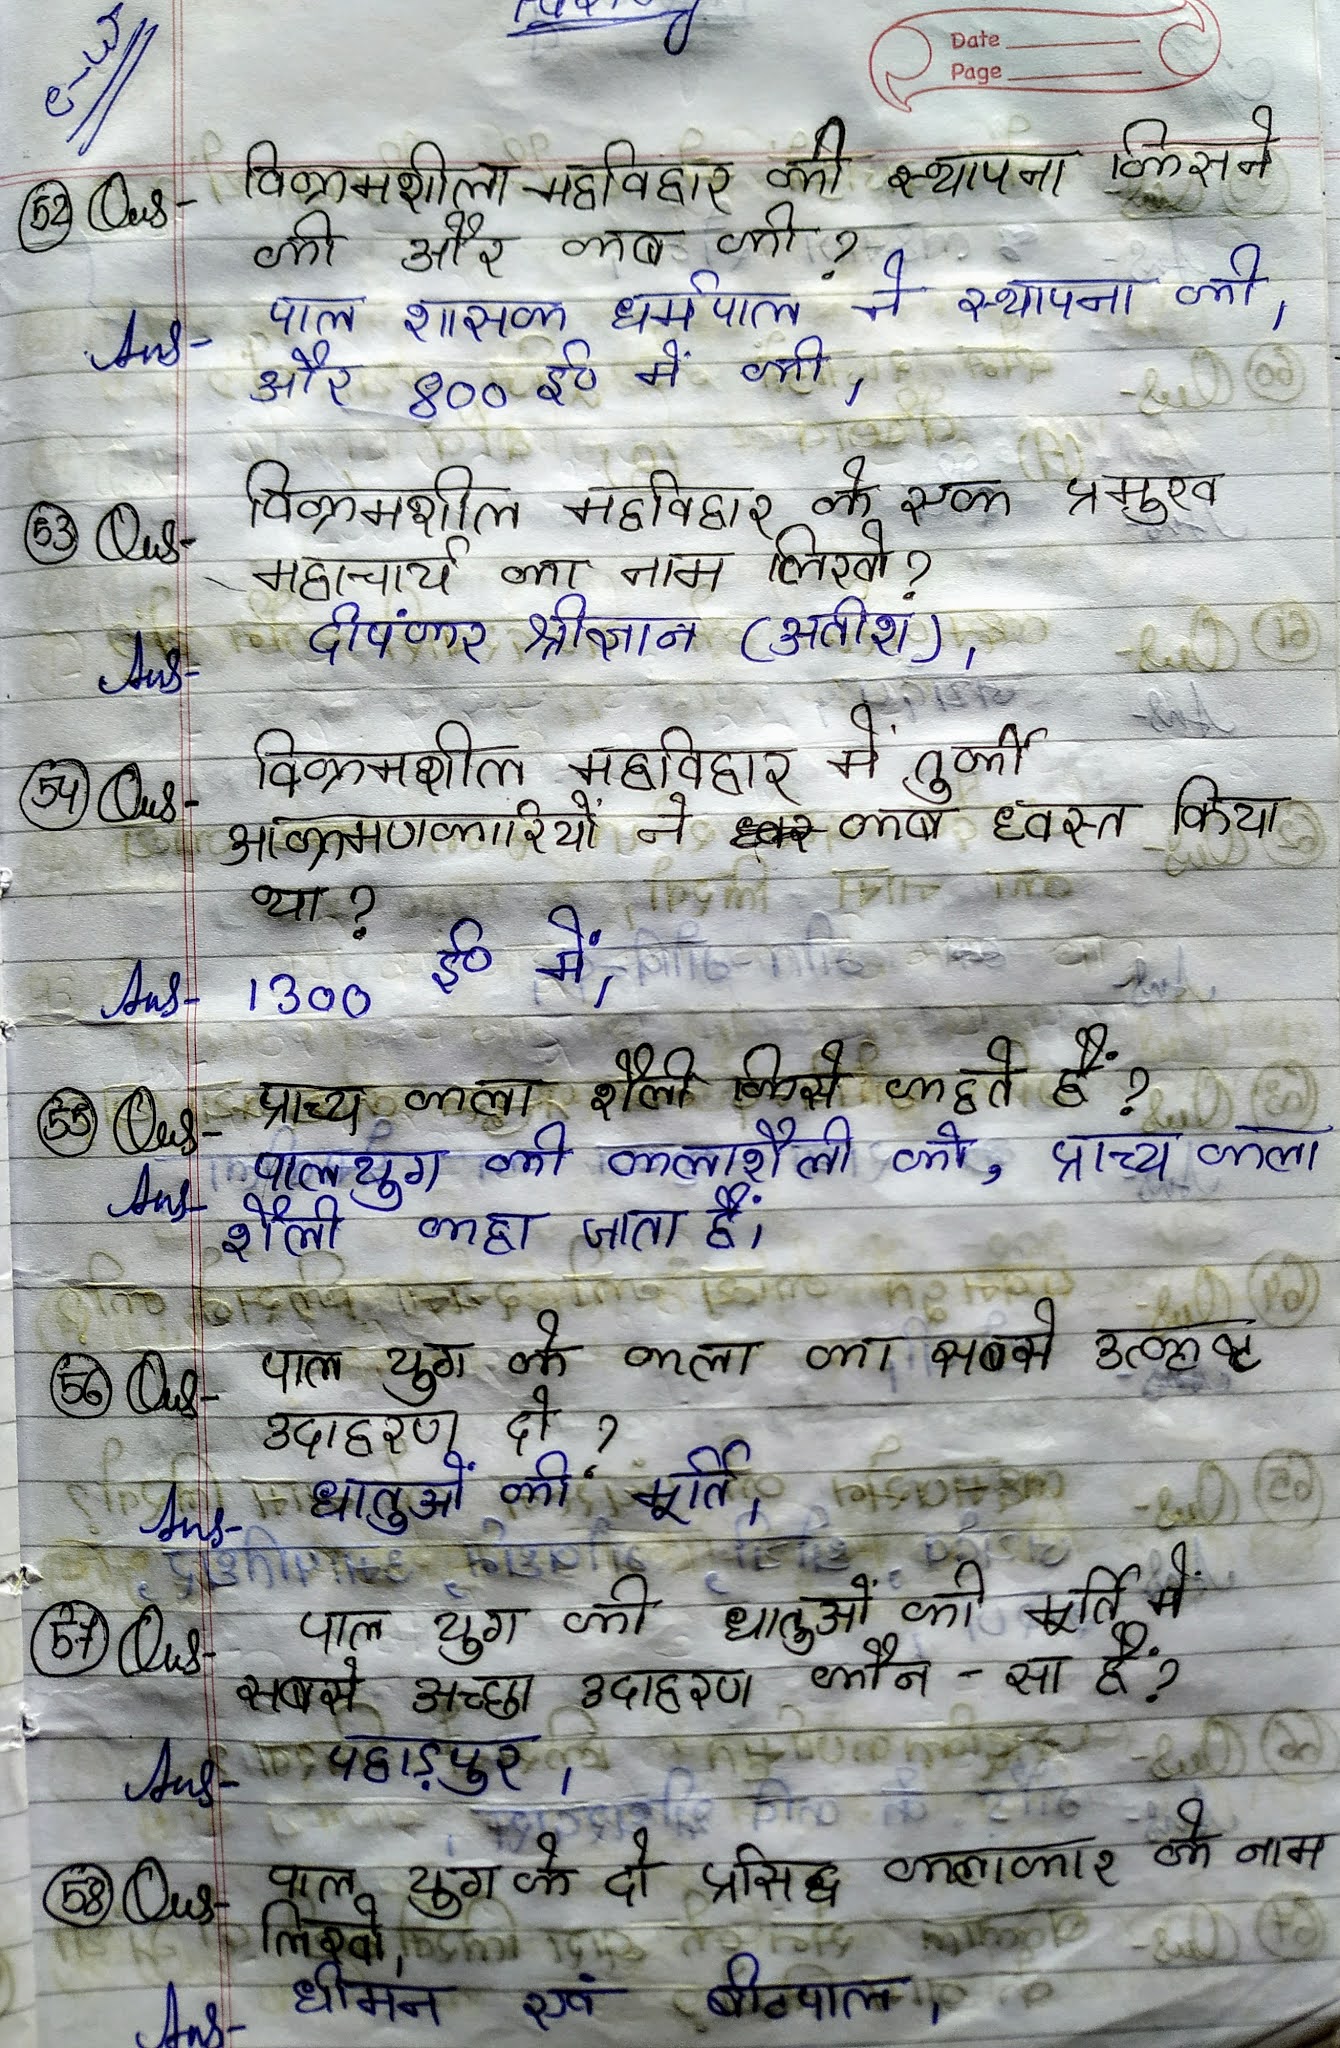 Date
Page
52 Ques- विक्रमशीला महाविहार की स्थापना किसने
की और कब की?
Ans- पाल शासक धर्मपाल ने स्थापना की,
और 800 ई० में की,
53 Ques- विक्रमशील महाविहार के एक प्रमुख
महाचार्य का नाम लिखो?
Ans- दीपंकर श्रीज्ञान (अतीश),
54 Ques- विक्रमशील महाविहार में तुर्की
आक्रमणकारियों ने कब ध्वस्त किया
था?
Ans- 1300 ई० में,
55 Ques- प्राच्य कला शैली किसे कहते हैं?
Ans- पाल युग की कलाशैली को, प्राच्य कला
शैली कहा जाता हैं,
56 Ques- पाल युग के कला का सबसे उत्कृष्ट
उदाहरण दो?
Ans- धातुओं की मूर्ति,
57 Ques- पाल युग की धातुओं की मूर्ति में
सबसे अच्छा उदाहरण कौन-सा हैं?
Ans- पहाड़पुर,
58 Ques- पाल युग के दो प्रसिद्ध कलाकार के नाम
लिखो,
Ans- धीमन एवं बीटपाल,